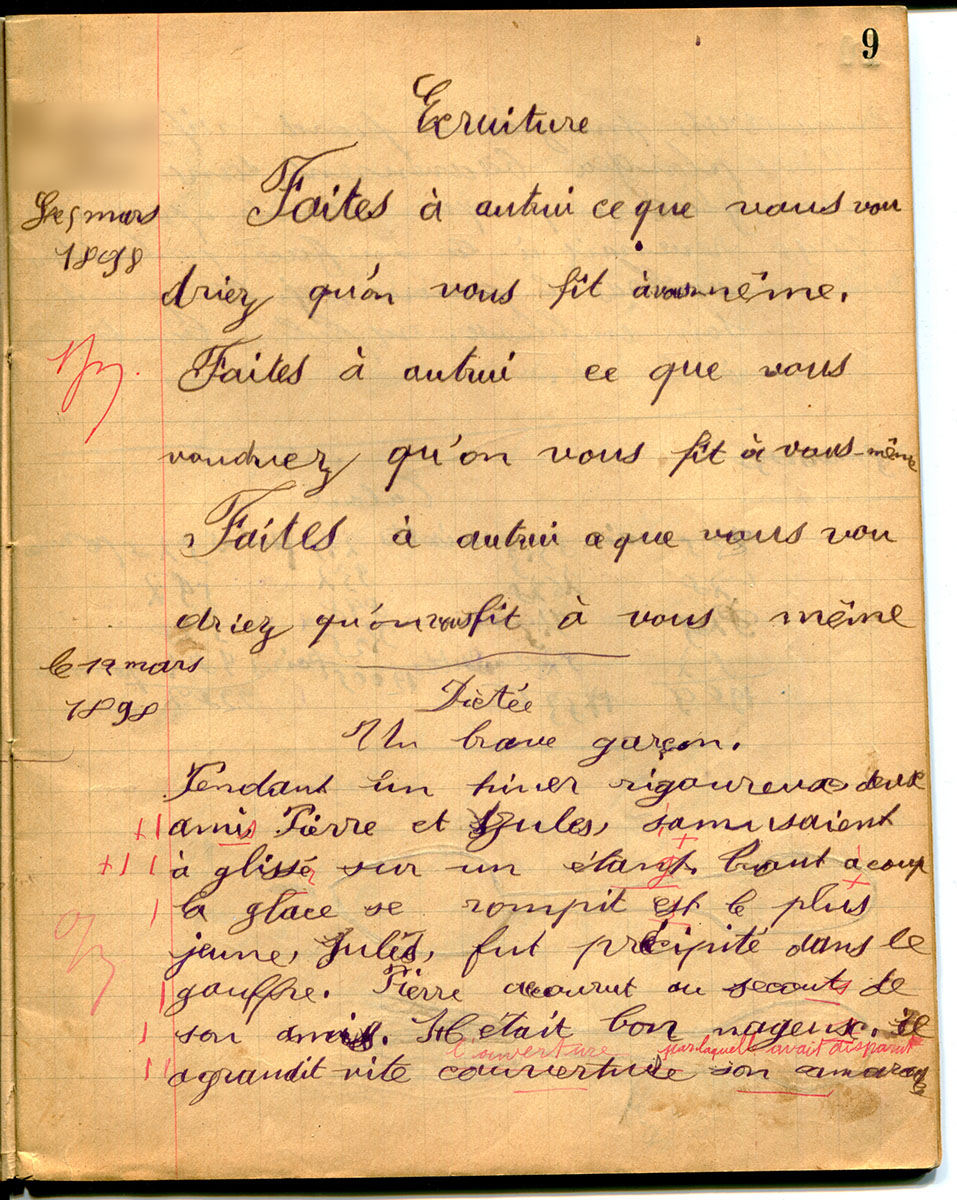 9
Ecruiture
Le 5 mars
1898
Faites à autrui ce que vous vou
driez qu'on vous fit à vous même.
Faites à autrui ce que vous
voudriez qu'on vous fit à vous-même
Faites à autrui ce que vous vou
driez qu'on vous fit à vous même
le 12 mars
1898
Dictée
Un brave garçon.
Pendant un hiver rigoureux deux
amis, Pierre et Jules, s'amusaient
à glissér sur un étang. tout à coup
la glace se rompit est le plus
jeune, Jules, fut précipité dans le
gouffre. Pierre accourut au secours de
son ami. Il était bon nageur. il
l'ouverture par laquelle avait disparut
agrandit vite couverture son amarag